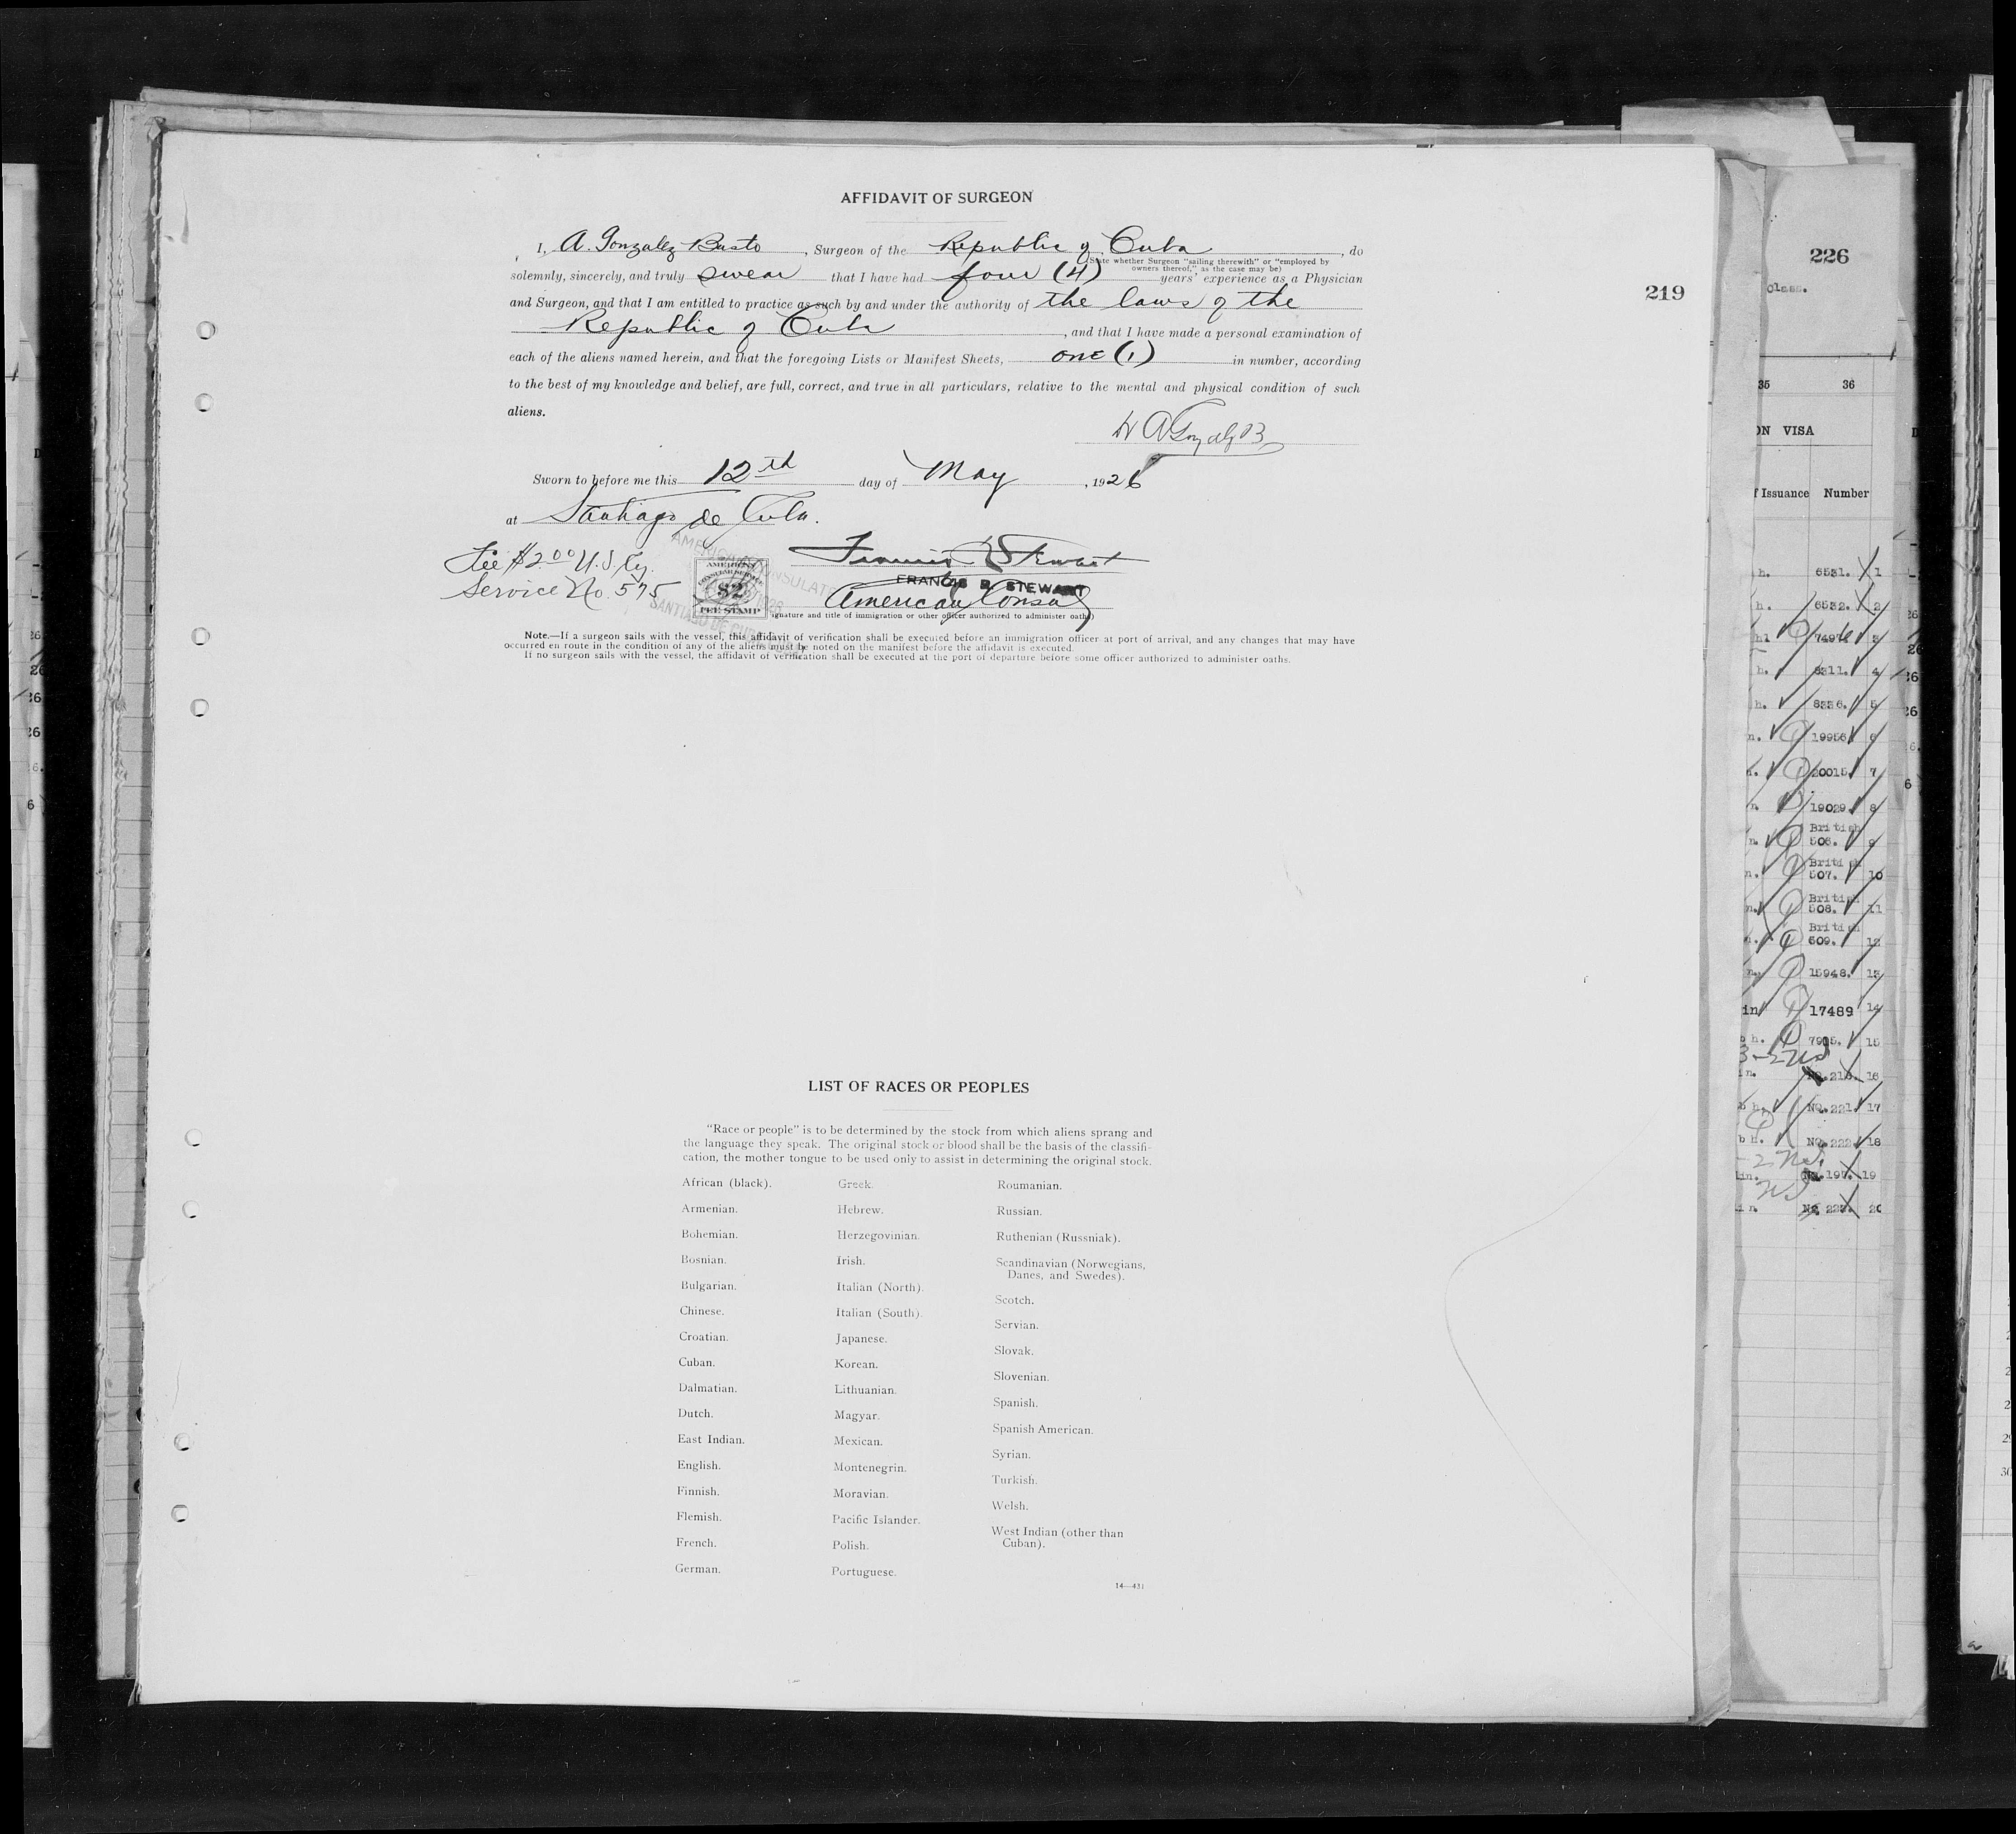 AFFIDAVIT OF SURGEON
I, A. Gonzalez Busto, Surgeon of the Republic of Cuba, do
(State whether Surgeon "sailing therewith" or "employed by
owners thereof," as the case may be)
solemnly, sincerely, and truly swear that I have had four (4) years' experience as a Physician
and Surgeon, and that I am entitled to practice as such by and under the authority of the laws of the
Republic of Cuba, and that I have made a personal examination of
each of the aliens named herein, and that the foregoing Lists or Manifest Sheets, one (1) in number, according
to the best of my knowledge and belief, are full, correct, and true in all particulars, relative to the mental and physical condition of such
aliens.
Sworn to before me this 12th day of May, 1926
at Santiago de Cuba.
Fee $2.00 U.S. Cy.
Service No. 575
AMERICAN CONSULATE
SANTIAGO DE CUBA
AMERICAN
CONSULAR SERVICE
$2
FEE STAMP
Francis R Stewart
FRANCIS R. STEWART
American Consul
(Signature and title of immigration or other officer authorized to administer oaths)
Note.—If a surgeon sails with the vessel, this affidavit of verification shall be executed before an immigration officer at port of arrival, and any changes that may have
occurred en route in the condition of any of the aliens must be noted on the manifest before the affidavit is executed.
If no surgeon sails with the vessel, the affidavit of verification shall be executed at the port of departure before some officer authorized to administer oaths.
LIST OF RACES OR PEOPLES
"Race or people" is to be determined by the stock from which aliens sprang and
the language they speak. The original stock or blood shall be the basis of the classifi-
cation, the mother tongue to be used only to assist in determining the original stock.
African (black).
Armenian.
Bohemian.
Bosnian.
Bulgarian.
Chinese.
Croatian.
Cuban.
Dalmatian.
Dutch.
East Indian.
English.
Finnish.
Flemish.
French.
German.
Greek.
Hebrew.
Herzegovinian.
Irish.
Italian (North).
Italian (South).
Japanese.
Korean.
Lithuanian.
Magyar.
Mexican.
Montenegrin.
Moravian.
Pacific Islander.
Polish.
Portuguese.
Roumanian.
Russian.
Ruthenian (Russniak).
Scandinavian (Norwegians,
Danes, and Swedes).
Scotch.
Servian.
Slovak.
Slovenian.
Spanish.
Spanish American.
Syrian.
Turkish.
Welsh.
West Indian (other than
Cuban).
14—431
219
226
Class.
35 36
ON VISA
f Issuance Number
h. 6531. 1
h. 6532. 2
3
h. 8311. 4
h. 8336. 5
n. 19956 6
20015 7
n. 19029. 8
British
n. 506. 9
British
n. 507. 10
British
n. 508. 11
British
n. 509. 12
n. 15948. 13
in 17489 14
b h. 15
in. 16
b h. No. 221. 17
b h. No. 222 18
lin. No. 197. 19
lin. 20